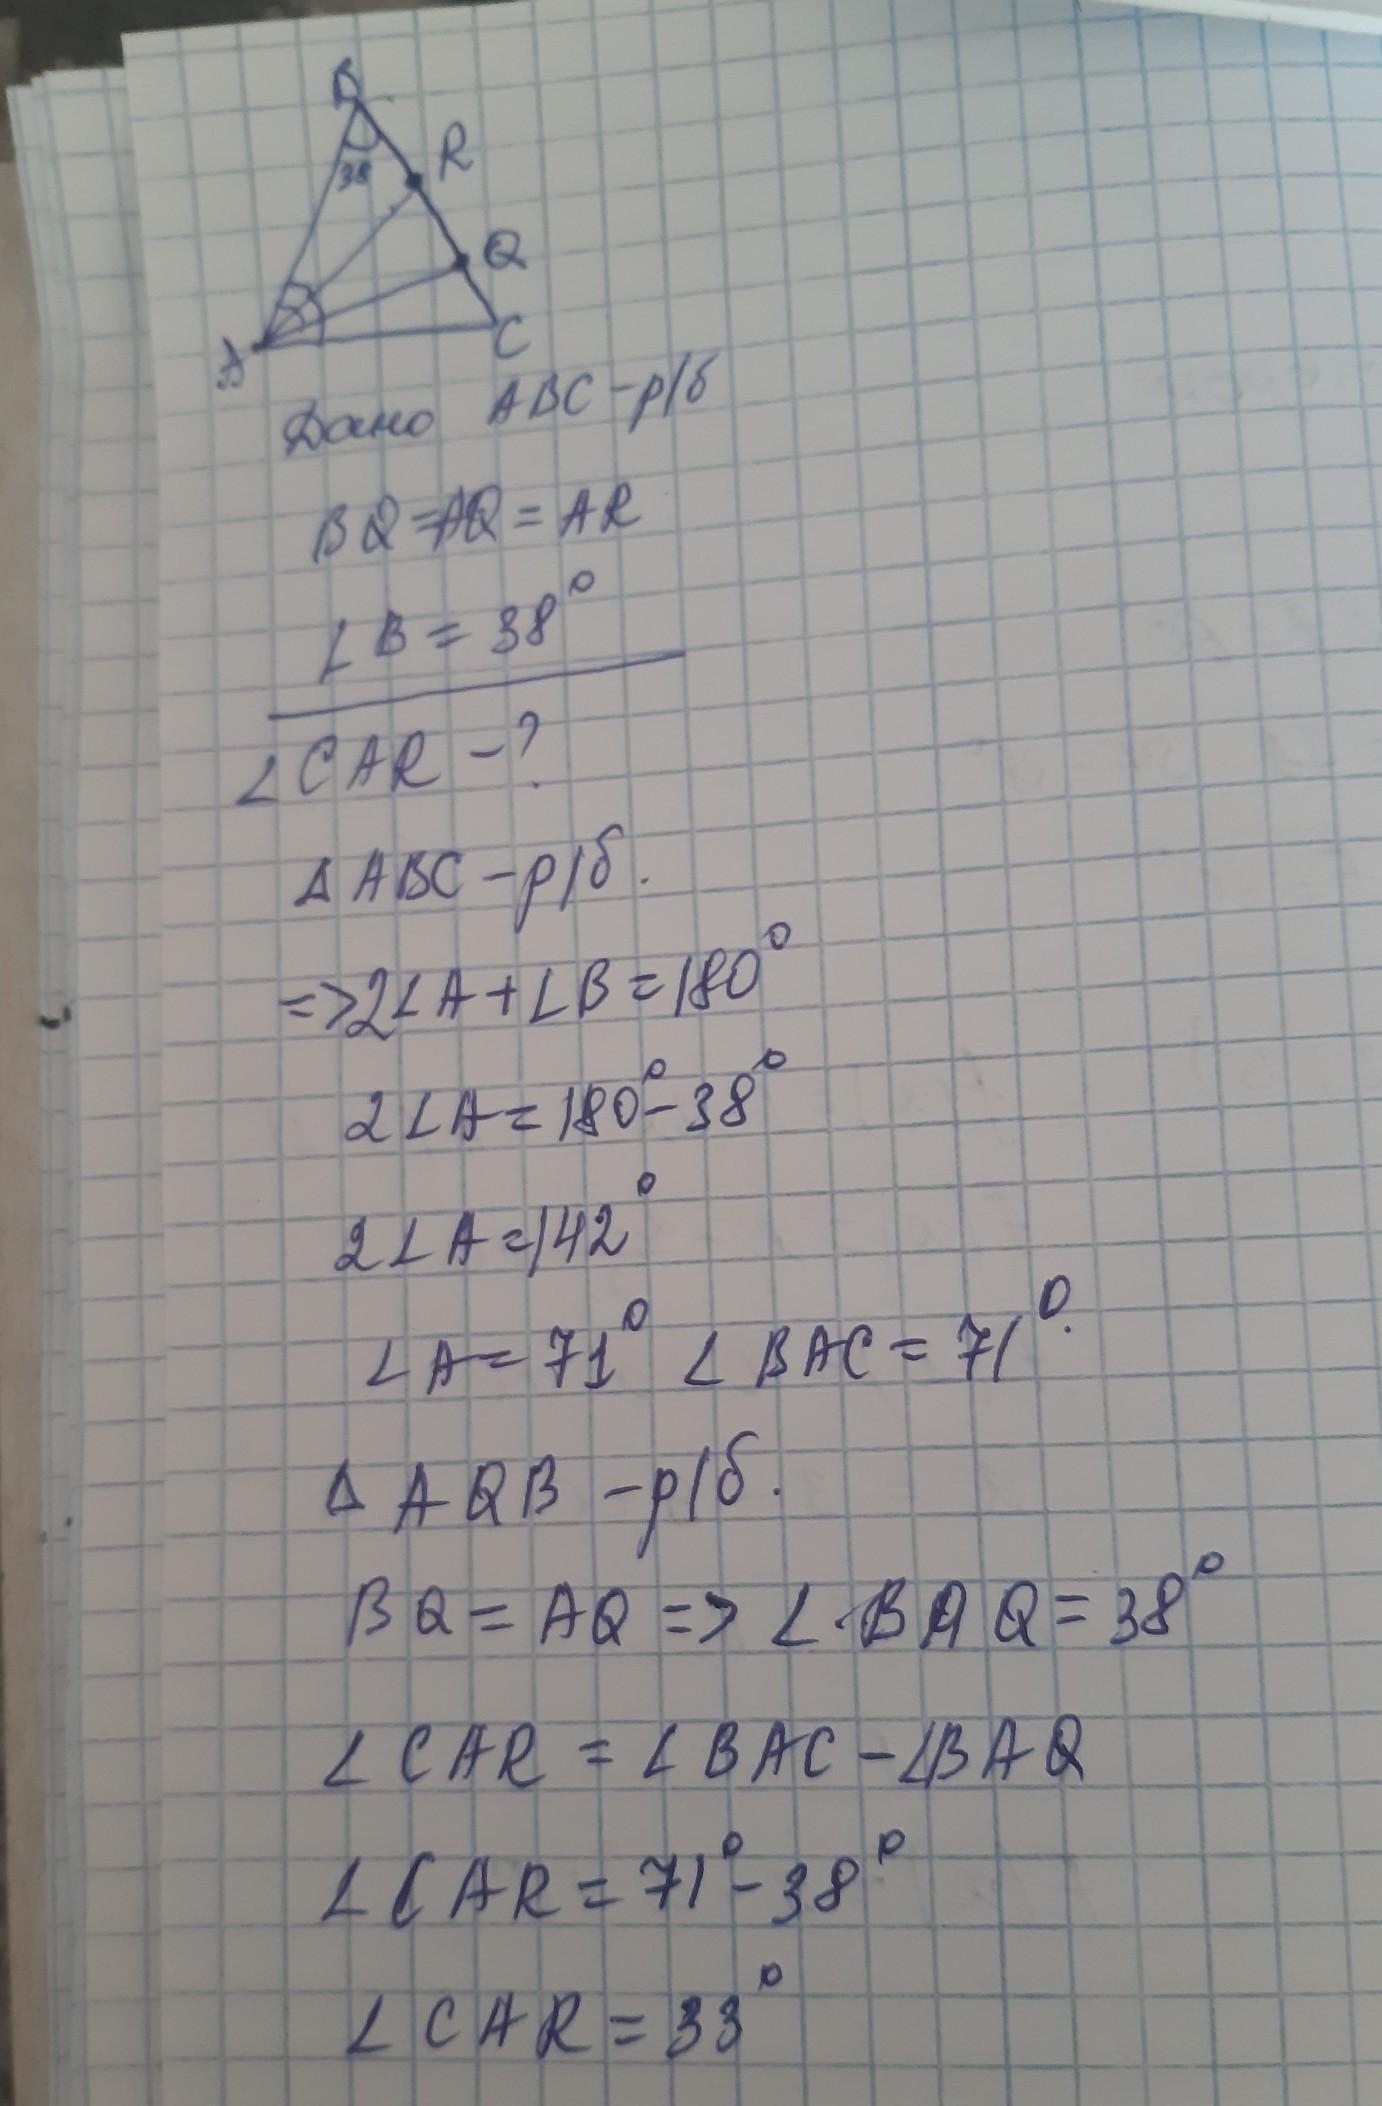 B
38
R
Q
A
C
Дано ABC - р/б
BQ = AQ = AR
∠B = 38°
∠CAR - ?
Δ ABC - р/б.
=> 2∠A + ∠B = 180°
2∠A = 180° - 38°
2∠A = 142°
∠A = 71° ∠BAC = 71°.
Δ AQB - р/б.
BQ = AQ => ∠BAQ = 38°
∠CAR = ∠BAC - ∠BAQ
∠CAR = 71° - 38°
∠CAR = 33°